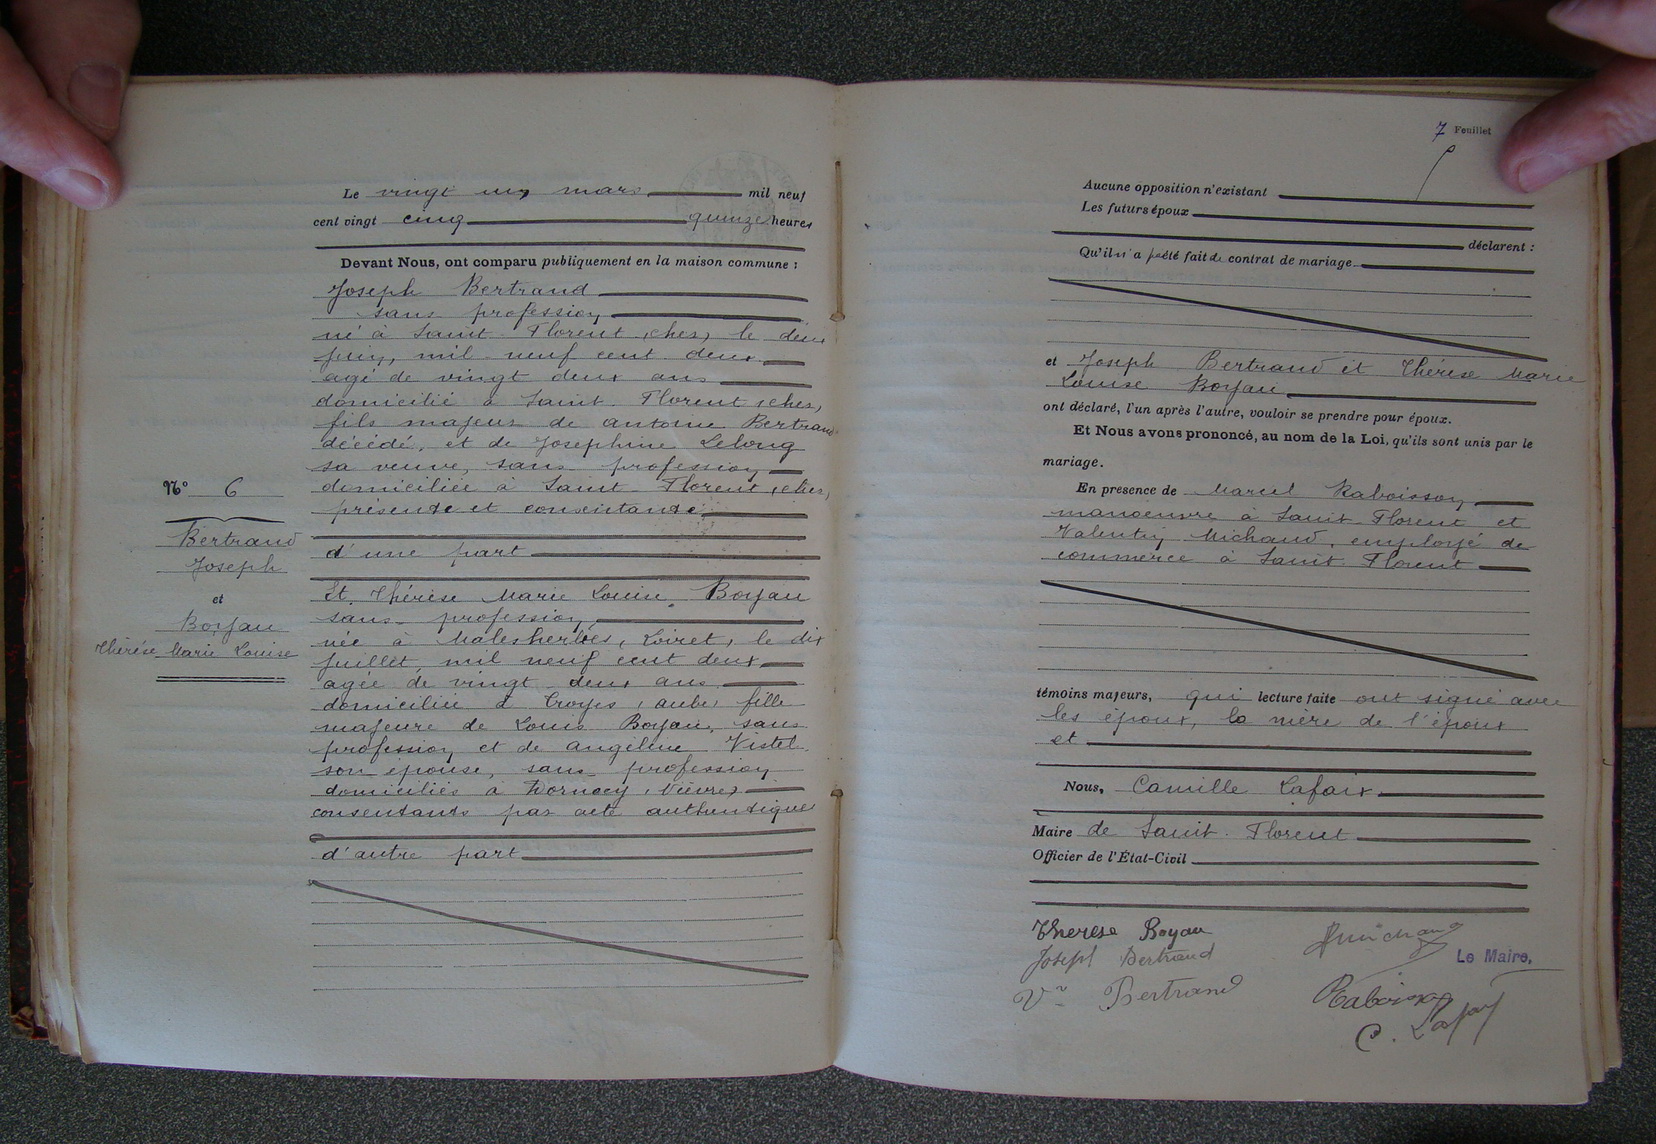 Le vingt un mars mil neuf
cent vingt cinq quinze heures
Devant Nous, ont comparu publiquement en la maison commune :
Joseph Bertrand
sans profession
né à Saint-Florent, cher, le deux
juin, mil neuf cent deux
agé de vingt deux ans
domicilié à Saint-Florent, cher,
fils majeur de antoine Bertrand
décédé, et de Joséphine Lelong
sa veuve, sans profession
domiciliée à Saint-Florent, cher,
présente et consentante
d'une part
Et Thérèse Marie Louise Boyau
sans profession,
née à Malesherbes, Loiret, le dix
juillet, mil neuf cent deux
agée de vingt deux ans
domiciliée à Troyes, aube, fille
majeure de Louis Boyau, sans
profession et de angéline Vistel
son épouse, sans profession
domiciliés à Dornecy, Nièvre,
consentants par acte authentique
d'autre part
N° 6
Bertrand
Joseph
et
Boyau
Thérèse Marie Louise
7 Feuillet
Aucune opposition n'existant
Les futurs époux
déclarent :
Qu'il n'a pas été fait de contrat de mariage
et Joseph Bertrand et Thérèse Marie
Louise Boyau
ont déclaré, l'un après l'autre, vouloir se prendre pour époux.
Et Nous avons prononcé, au nom de la Loi, qu'ils sont unis par le
mariage.
En presence de Marcel Raboisson
manoeuvre à Saint-Florent et
Valentin Michaud, employé de
commerce à Saint-Florent
témoins majeurs, qui lecture faite ont signé avec
les époux, la mère de l'époux
et
Nous, Camille Lafaix
Maire de Saint-Florent
Officier de l'État-Civil
Therese Boyau
Joseph Bertrand
Vve Bertrand
Michaud
Le Maire,
Raboisson
C. Lafaix